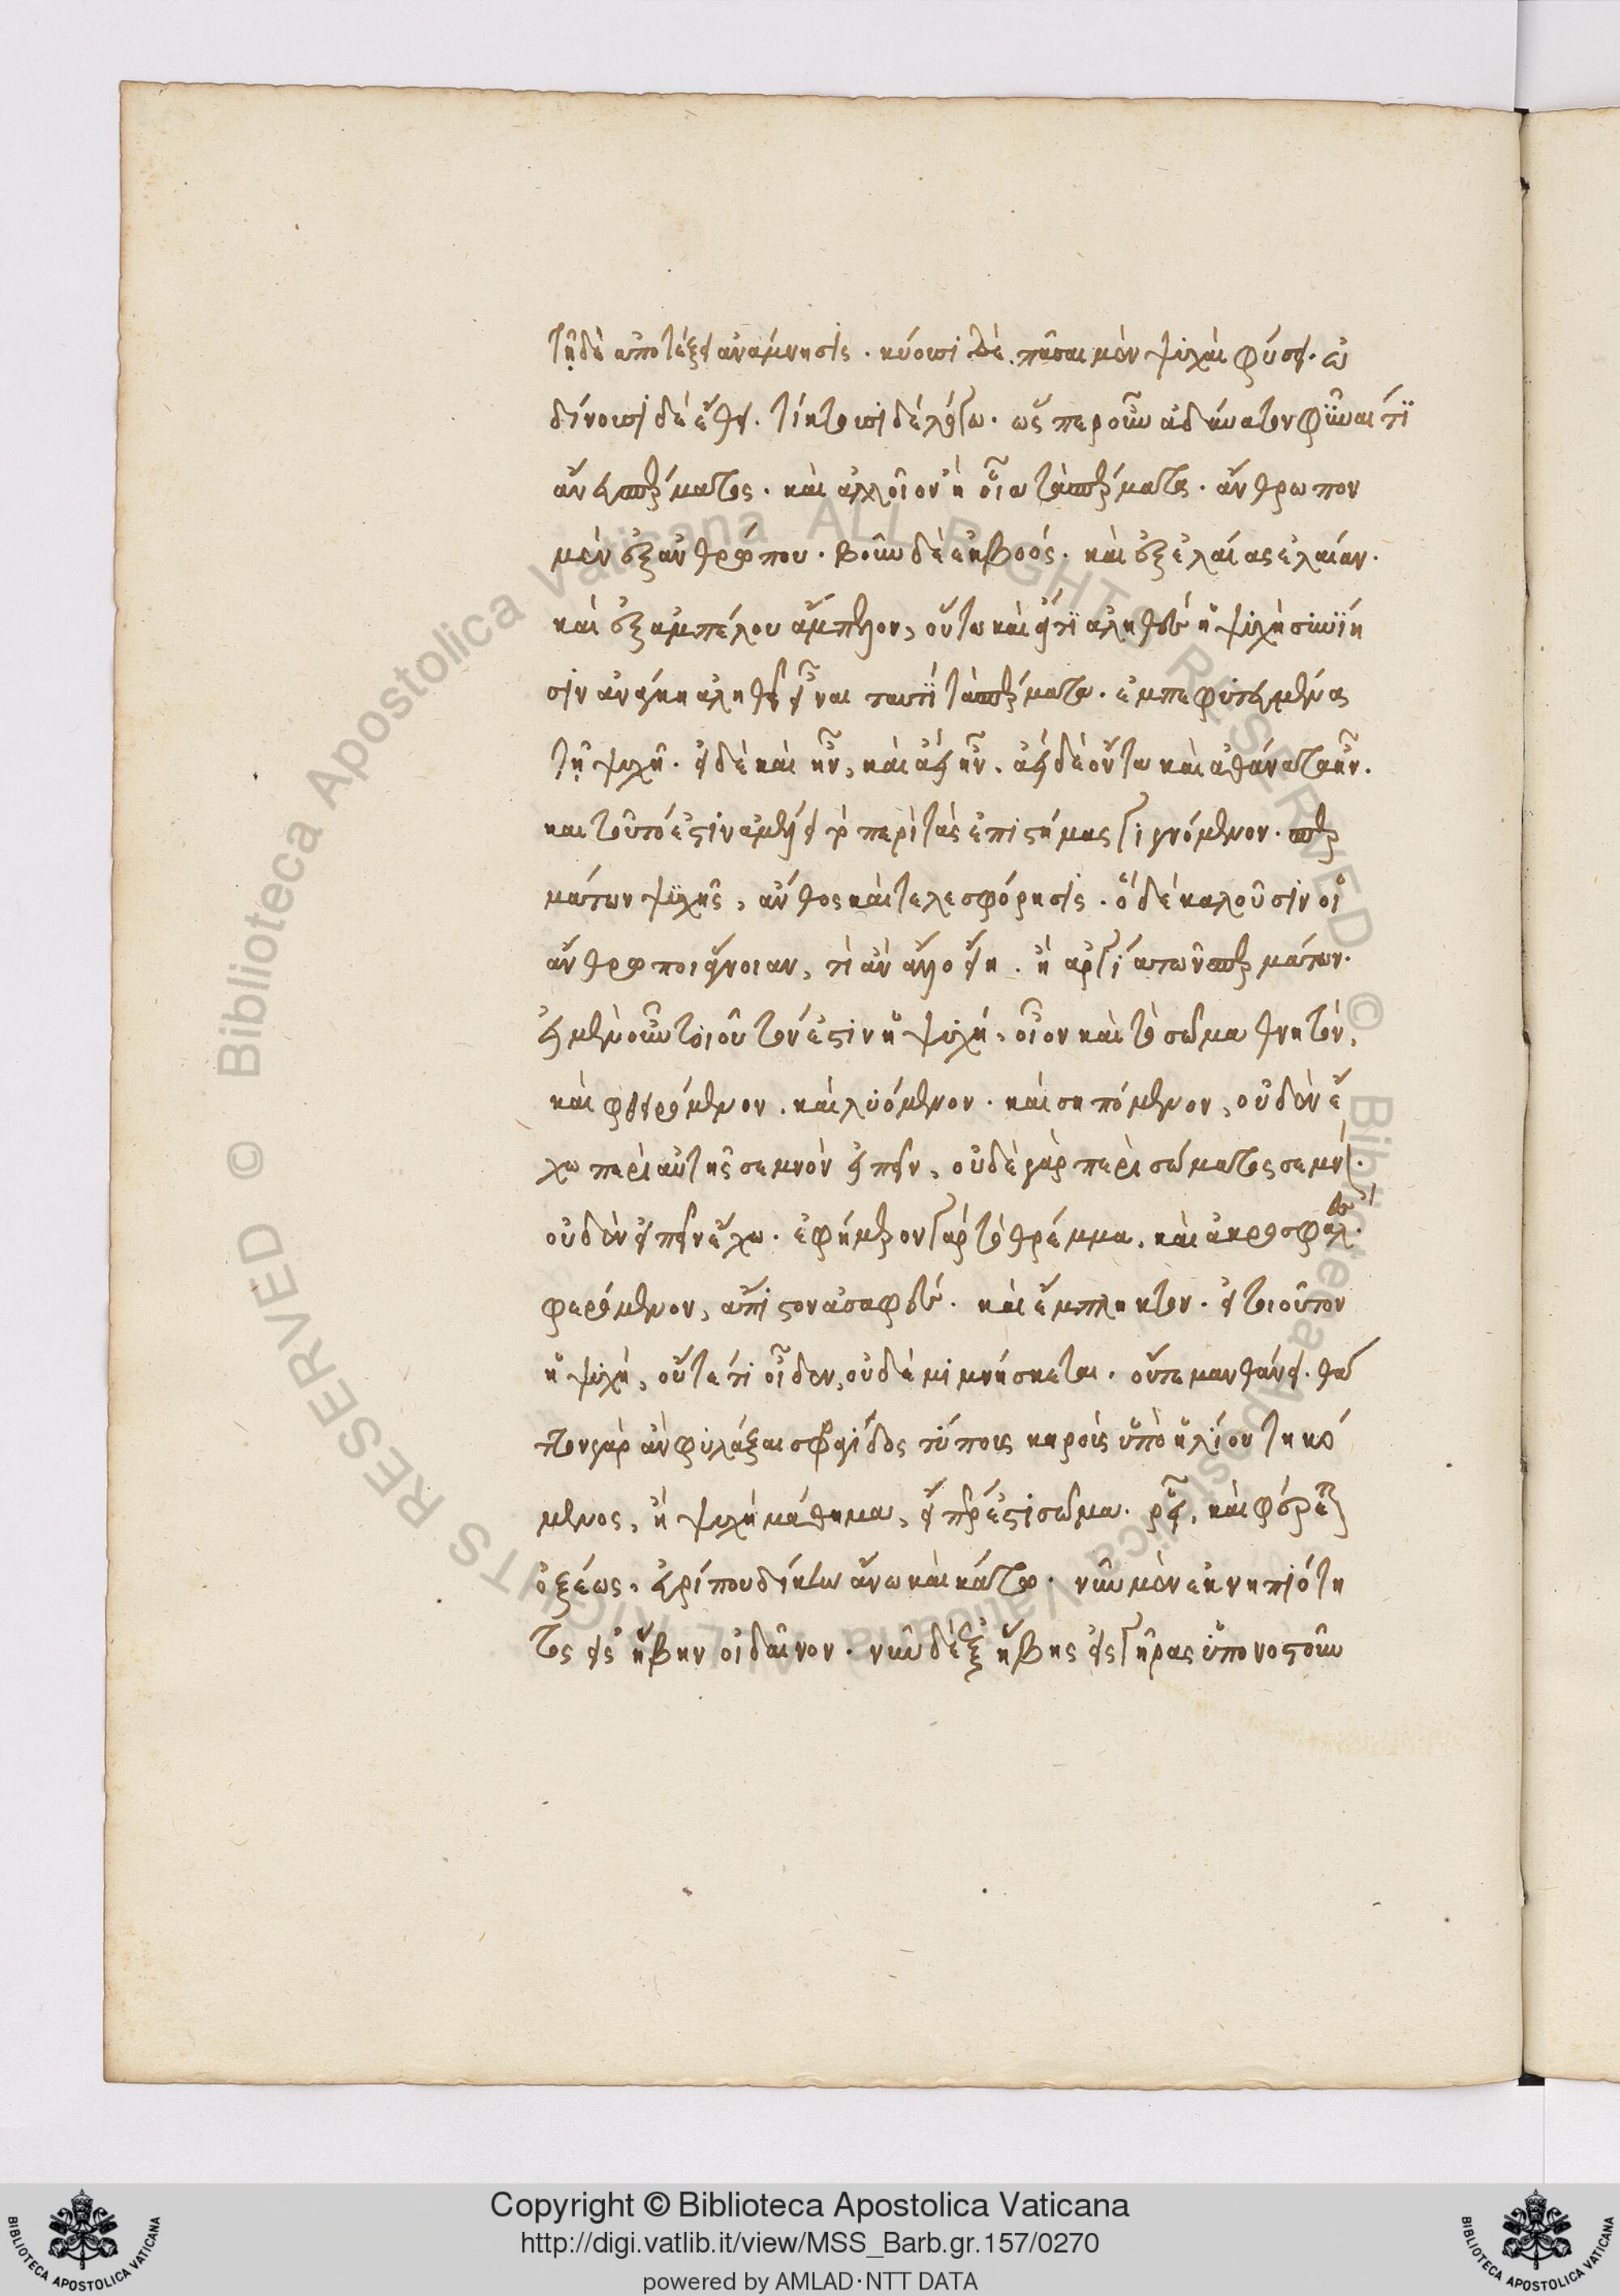 τῇ δὲ ἀποτέξει ἀνάμνησις. κύουσι δὲ πᾶσαι μὲν ψυχαὶ φύσει. ὠ
δίνουσι δὲ ἔθει. τίκτουσι δὲ λόγω. ὥσπερ οὖν ἀδύνατον φῦναί τι
ἄνευ σπέρματος. καὶ ἀλλοῖον ἢ οἷα τὰ σπέρματα. ἄνθρωπον
μὲν ἐξ ἀνθρώπου. βοῦν δὲ ἐκ βοός. καὶ ἐξ ἐλαίας ἐλαίαν.
καὶ ἐξ ἀμπέλου ἄμπελον, οὕτω καὶ εἴ τι ἀληθὲς ἡ ψυχὴ συνίη
σιν ἀνάγκη ἀληθῆ εἶναι ταυτὶ τὰ σπέρματα. ἐμπεφυτευμένα
τῇ ψυχῇ. εἰ δὲ καὶ ἦν, καὶ ἀεὶ ἦν. ἀεὶ δὲ ὄντα καὶ ἀθάνατα ἦν.
καὶ τοῦτό ἐστιν ἀμέλει τὸ περὶ τὰς ἐπιστήμας γιγνόμενον. σπερ
μάτων ψυχῆς, ἄνθος καὶ τελεσφόρησις. ὃ δὲ καλοῦσιν οἱ
ἄνθρωποι ἄγνοιαν, τί ἂν ἄλλο εἴη. ἢ ἀργία τῶν σπερμάτων.
εἰ μὲν οὖν τοιοῦτόν ἐστιν ἡ ψυχή, οἷον καὶ τὸ σῶμα θνητόν,
καὶ φθειρόμενον, καὶ λυόμενον. καὶ σηπόμενον, οὐδὲν ἔ
χω περὶ αὐτῆς σεμνὸν εἰπεῖν, οὐδὲ γὰρ περὶ σώματος σεμνὸν.
οὐδὲν εἰπεῖν ἔχω. ἐφήμερον γὰρ τὸ θρέμμα, καὶ ἀκροσφαλὲς.
φερόμενον, ἄπιστον ἀσαφὲς. καὶ ἔμπληκτον. εἰ τοιοῦτον
ἡ ψυχή, οὔτέ τι οἶδεν, οὐδὲ μιμνήσκεται. οὔτε μανθάνει. θᾶτ
τον γὰρ ἂν φυλάξαι σφραγίδος τύπους κηρὸς ὑπὸ ἡλίου τηκό
μενος, ἢ ψυχὴ μάθημα, εἴπερ ἐστὶ σῶμα. ῥεῖ, καὶ φέρεται
ὀξέως. εὐρίπου δίκην ἄνω καὶ κάτω. νῦν μὲν ἐκ νηπιότη
τος εἰς ἥβην οἰδαῖνον. νῦν δὲ ἐξ ἥβης εἰς γῆρας ὑπονοστοῦν
Copyright © Biblioteca Apostolica Vaticana
http://digi.vatlib.it/view/MSS_Barb.gr.157/0270
powered by AMLAD·NTT DATA